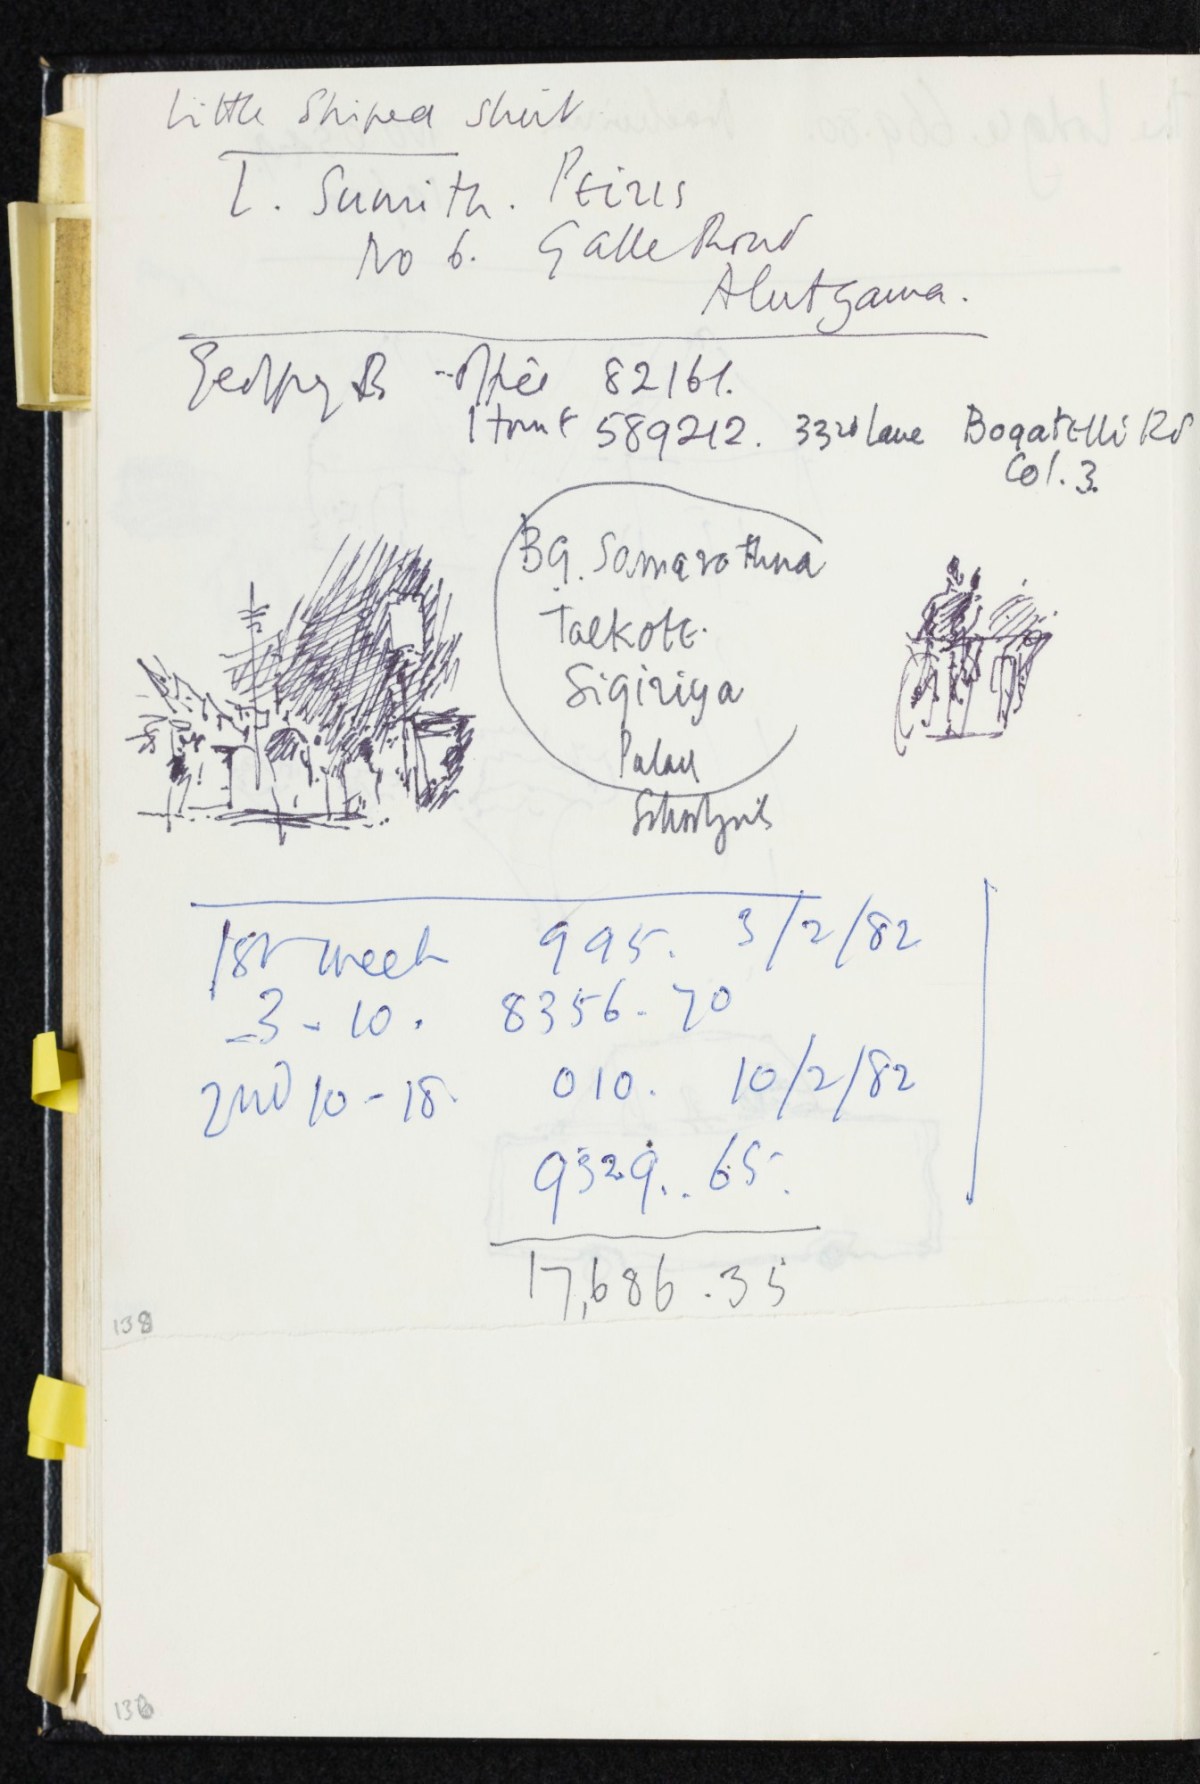 Little Striped Shirt
L. Sumith. PEIRIS
No 6. Galle Road
Alutgama.
Geoffrey B - Office 82161.
Home 589212. 33rd Lane Bogatelli Rd
Col. 3.
BG. Samarathna
Talkote.
Sigiriya
Palau
1st week 995. 3/2/82
3 - 10. 8356.70
2nd 10-18. 010. 10/2/82
9329..65.
17,686.35
138
136